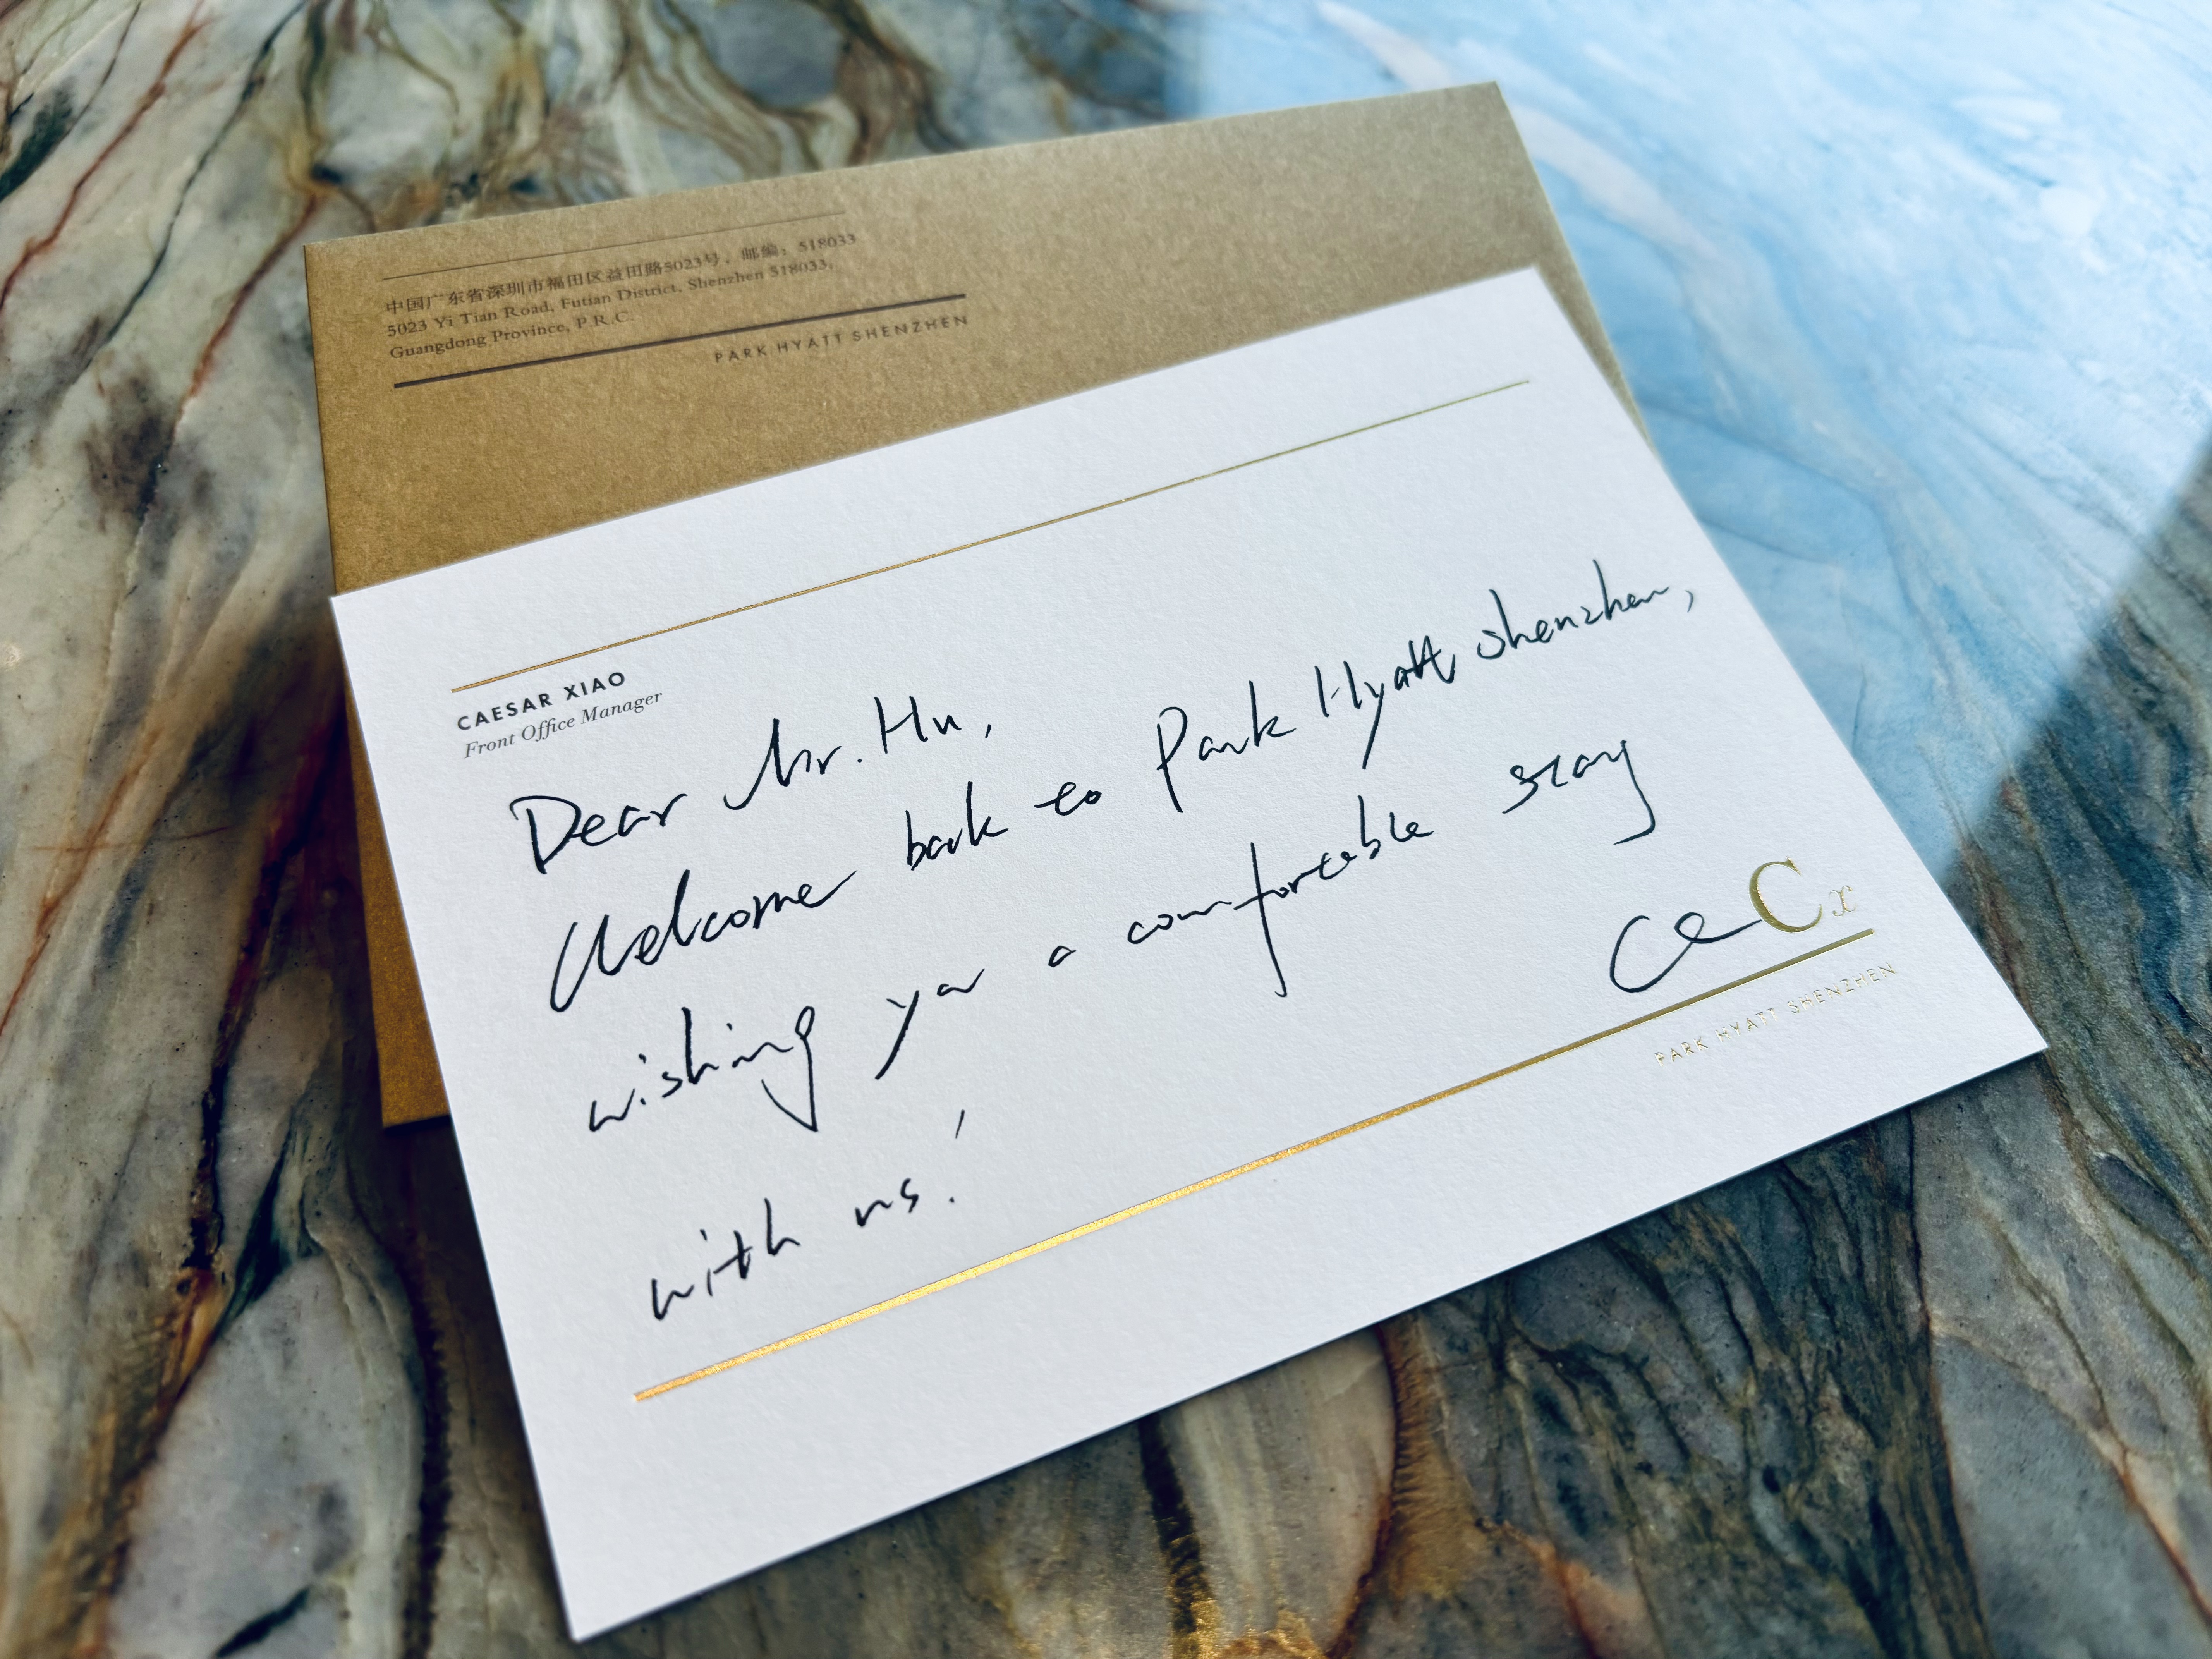 中国广东省深圳市福田区益田路5023号，邮编：518033
5023 Yi Tian Road, Futian District, Shenzhen 518033,
Guangdong Province, P.R.C.
PARK HYATT SHENZHEN
CAESAR XIAO
Front Office Manager
Dear Mr. Hu,
Welcome back to Park Hyatt Shenzhen,
wishing you a comfortable stay
with us!
Cx
PARK HYATT SHENZHEN